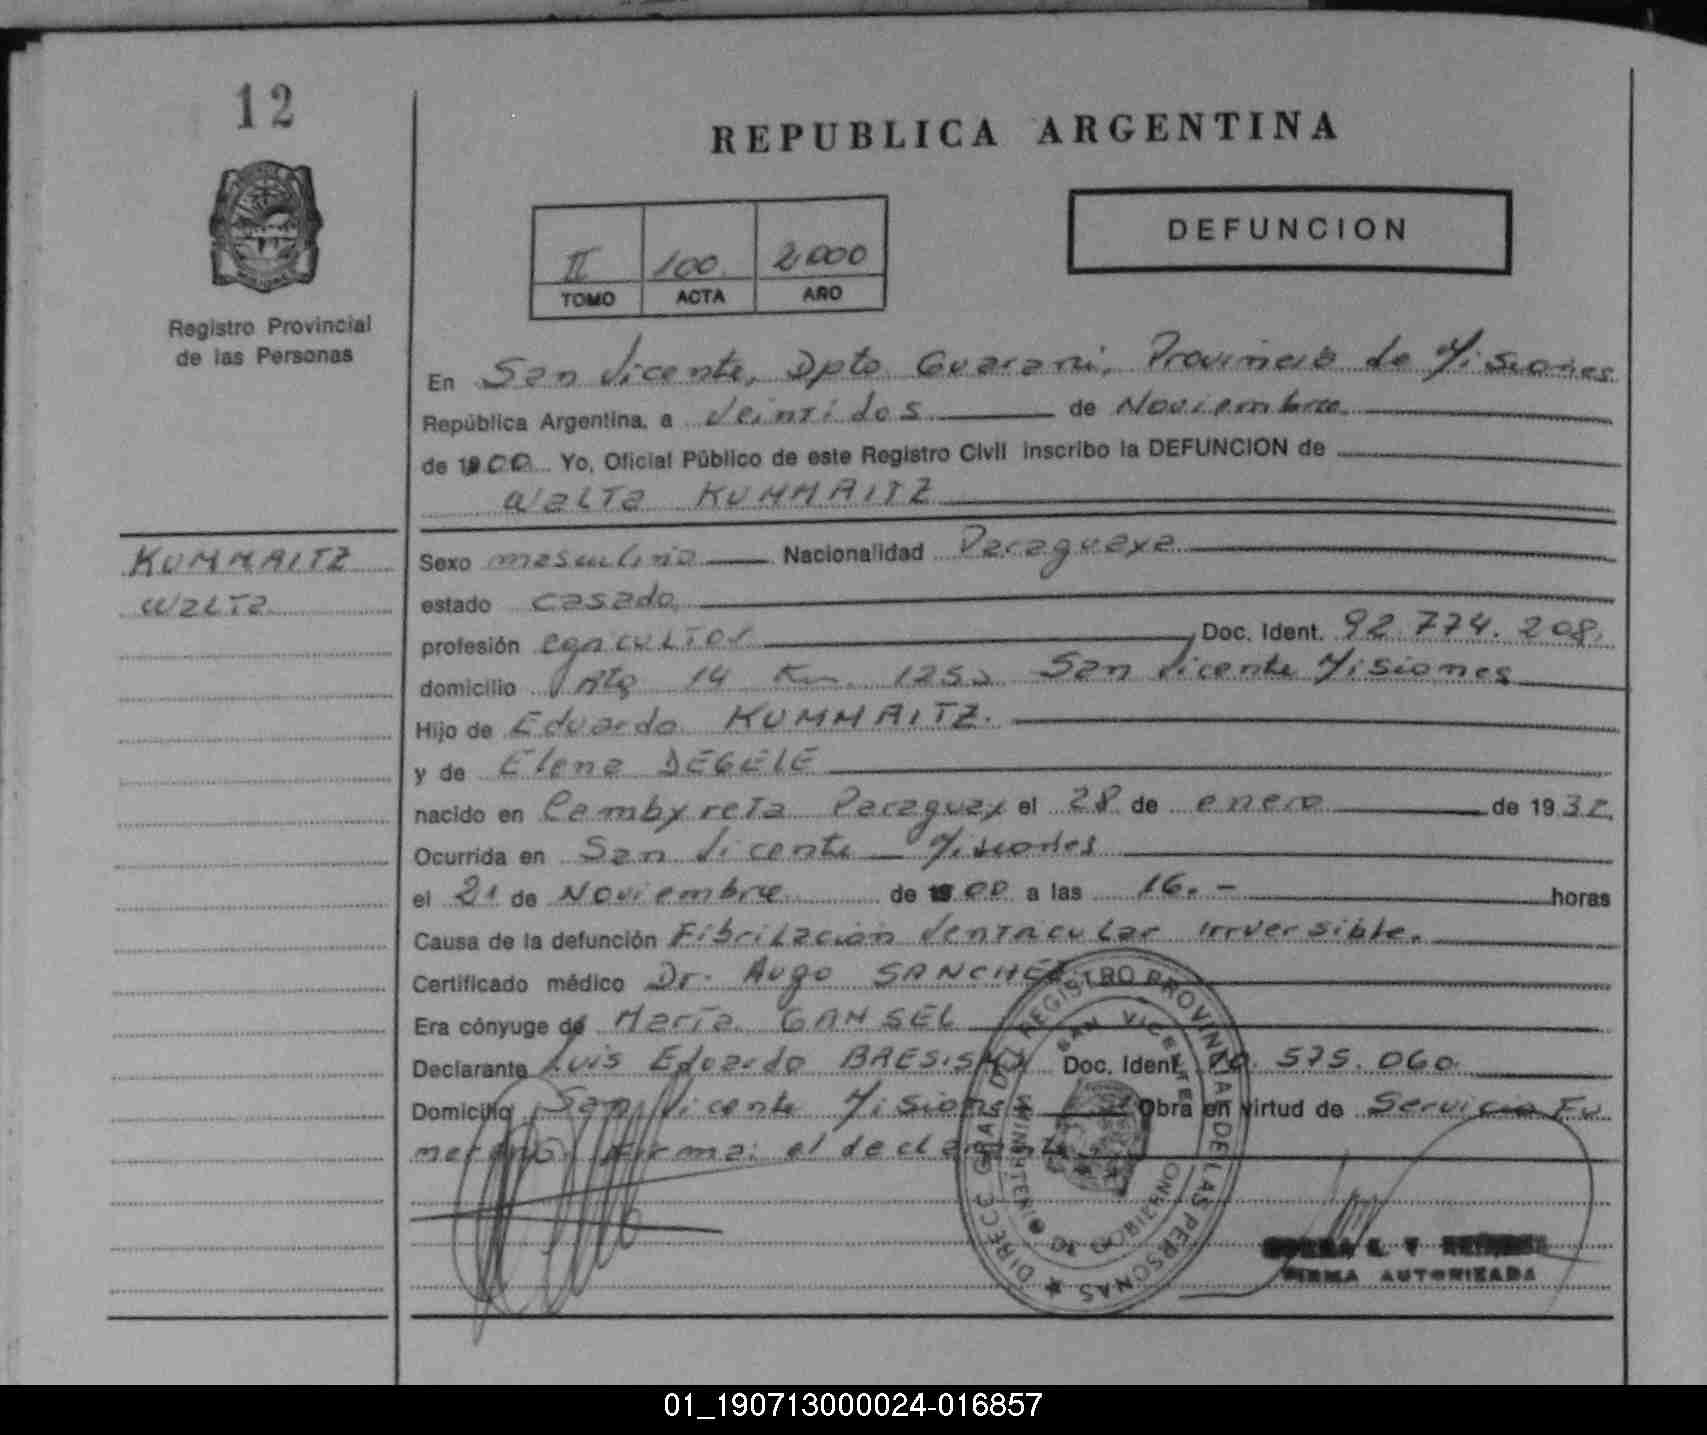 12
REPUBLICA ARGENTINA
DEFUNCION
II 100 2.000
TOMO ACTA AÑO
Registro Provincial
de las Personas
En San Vicente, Dpto Guarani, Provincia de Misiones
República Argentina, a Veintidos de Noviembre
de 1900 Yo, Oficial Público de este Registro Civil inscribo la DEFUNCION de
WaLTa KUMMAITZ
KUMMAITZ
WaLTa
Sexo masculino Nacionalidad Paraguaya
estado casado
profesión Doc. Ident. 92.774.208.
domicilio Rta 14 Km 1253 San Vicente Misiones
Hijo de Eduardo KUMMAITZ.
y de Elena DEGELE
nacido en Cambyreta Paraguay el 28 de enero de 1932
Ocurrida en San Vicente - Misiones
el 21 de Noviembre de 1900 a las 16.- horas
Causa de la defunción Fibrilación Ventricular irrversible.
Certificado médico Dr. Hugo SANCHEZ
Era cónyuge de María GANSEL
Declarante Luis Eduardo Doc. Ident. 575.060
Domicilio San Vicente Misiones Obra en virtud de Servicio Fu
nerario. Firma: el declarante
DIRECC GRAL DEL REGISTRO PROVINCIAL DE LAS PERSONAS
SAN VICENTE
MINISTERIO DE GOBIERNO
FIRMA AUTORIZADA
01_190713000024-016857